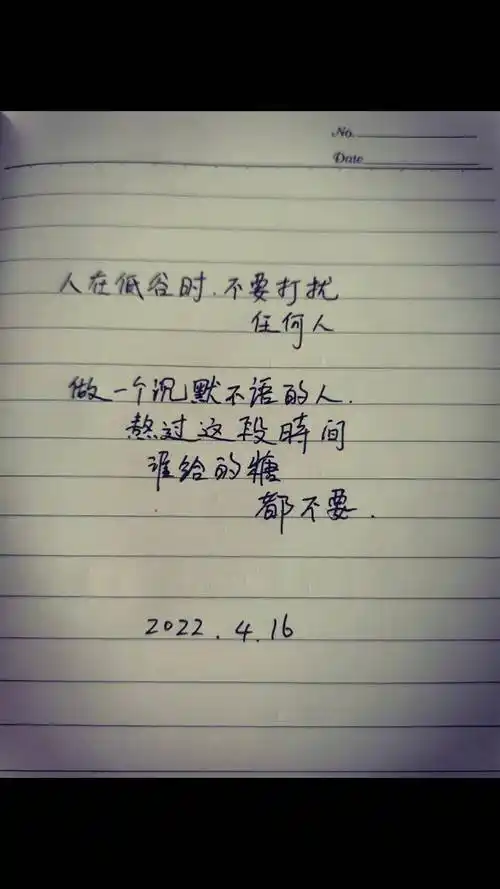 No.
Date
人在低谷时.不要打扰
任何人
做一个沉默不语的人.
熬过这段時间
谁给的糖
都不要.
2022.4.16